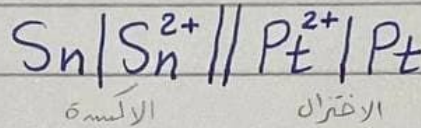 Sn|Sn²⁺||Pt²⁺|Pt
الاكسدة الاختزال